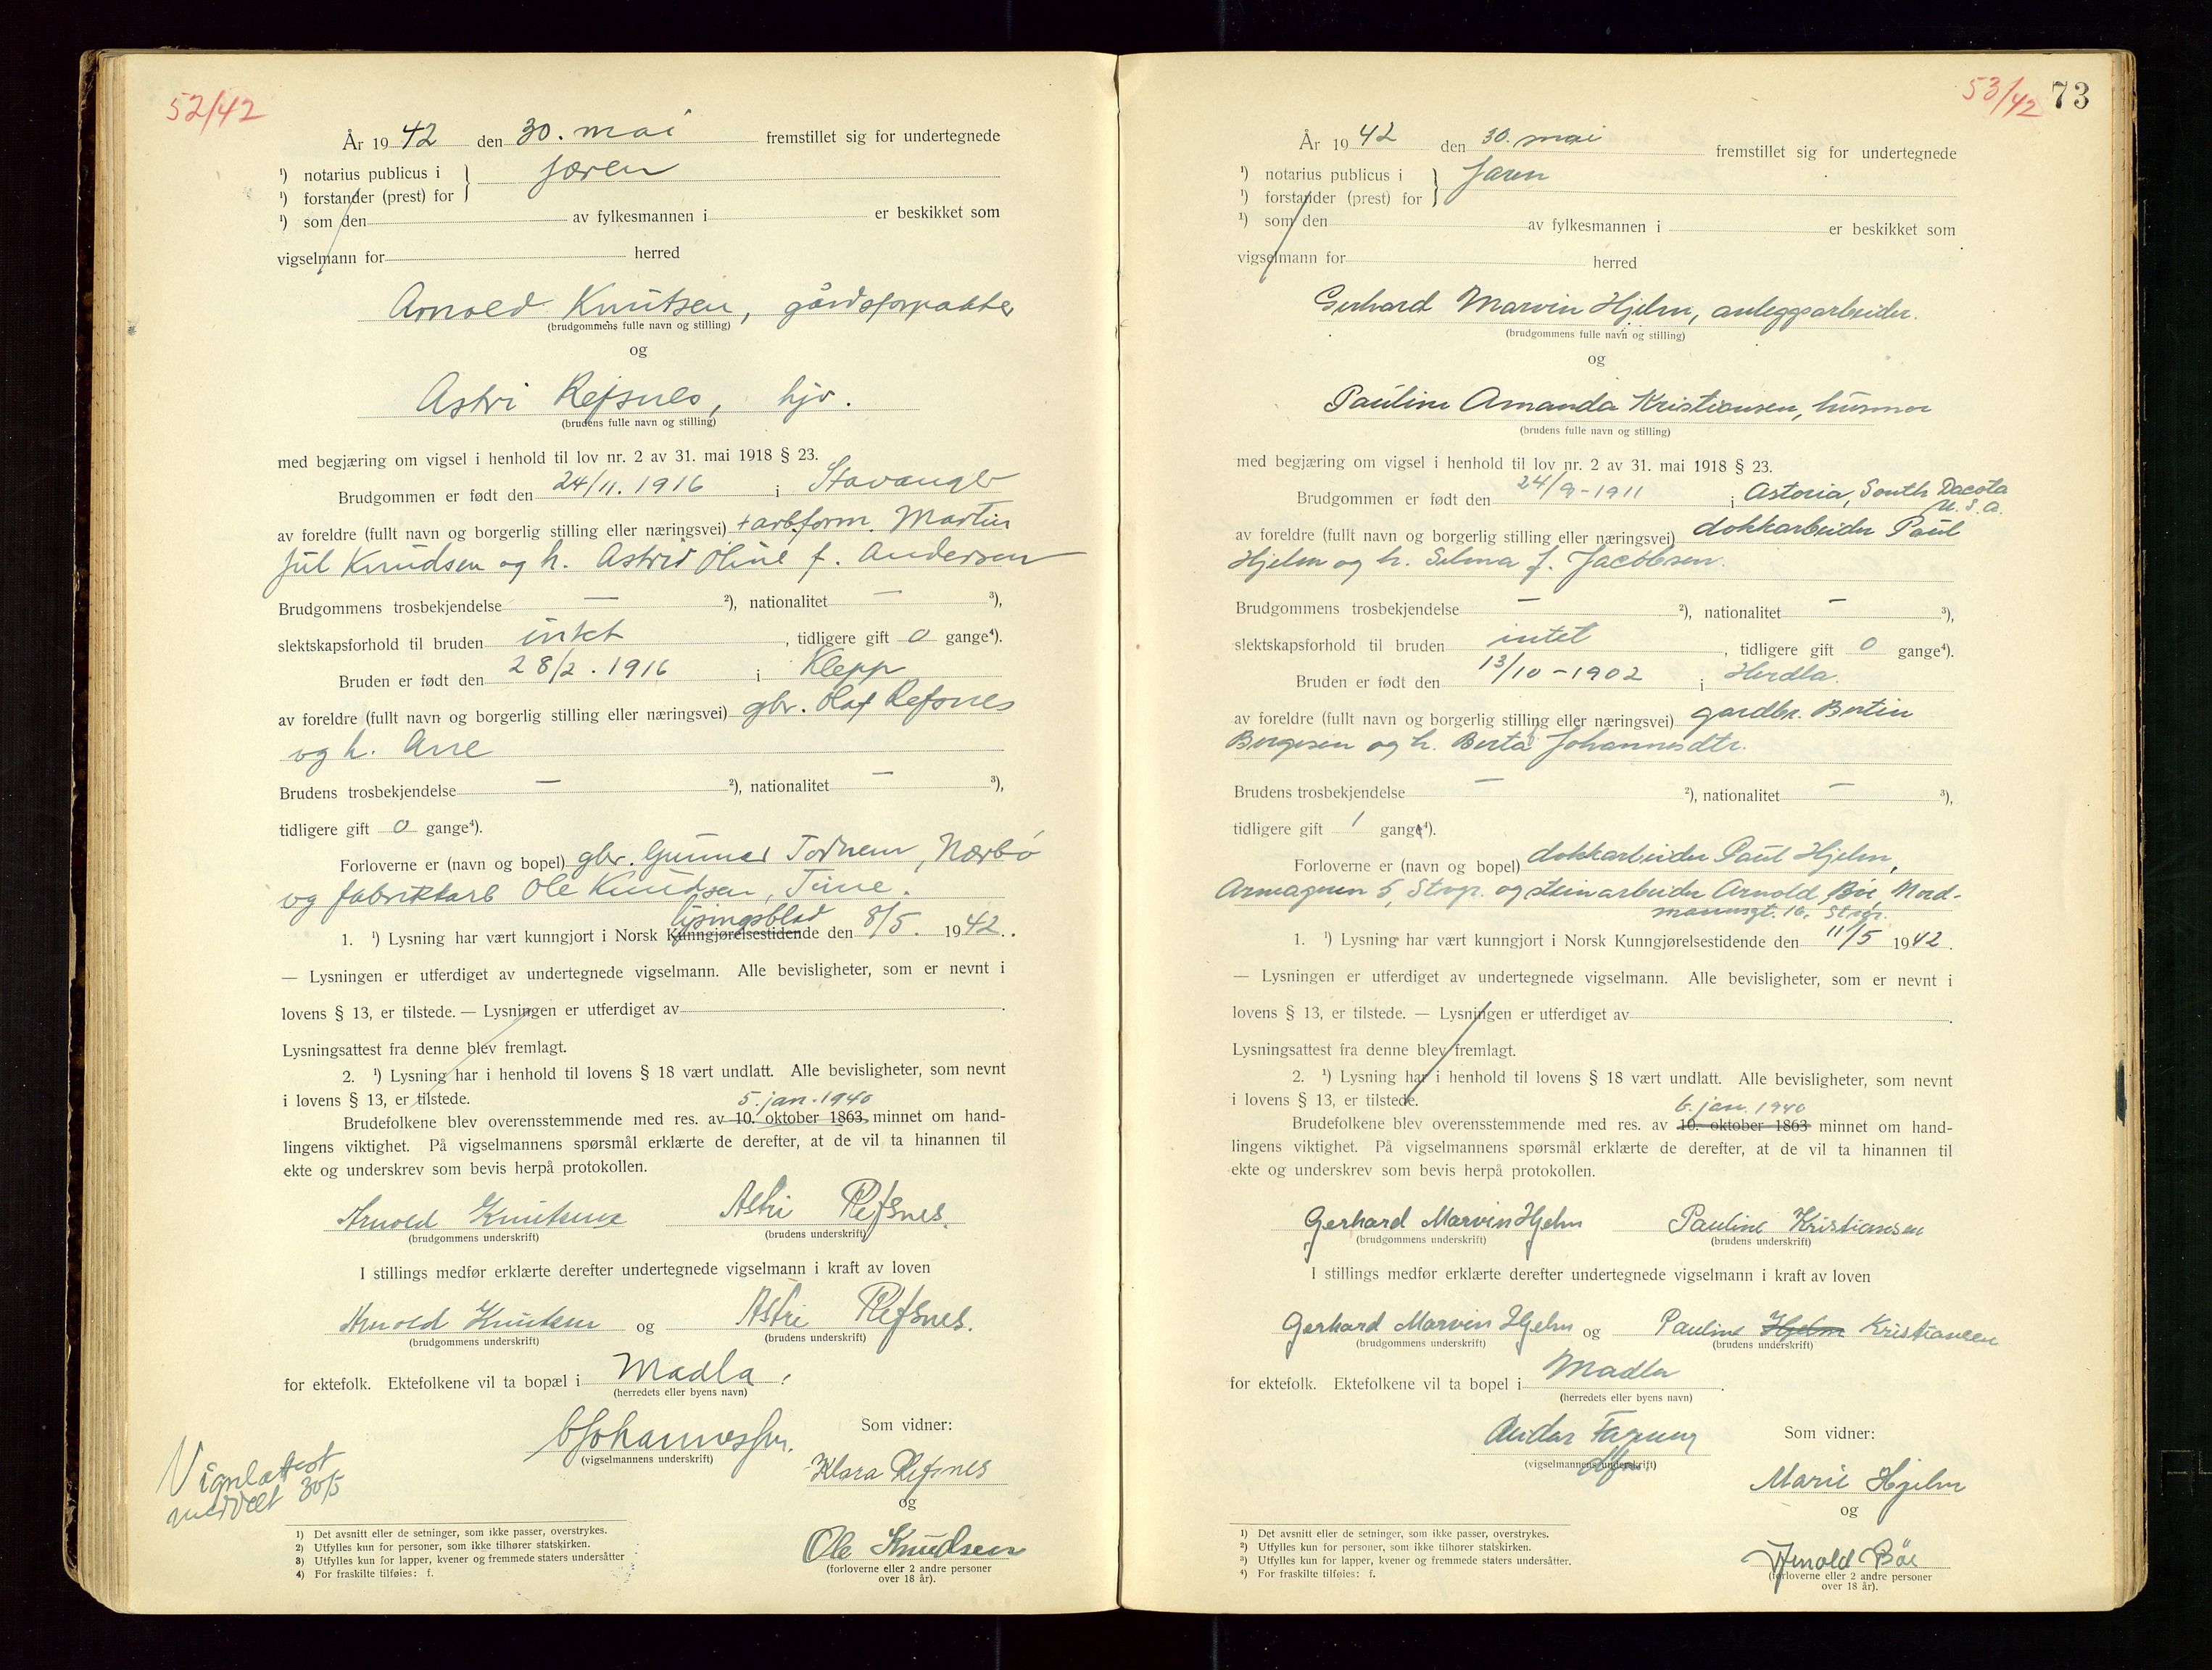 52/42
År 1942 den 30. mai fremstillet sig for undertegnede
¹) notarius publicus i } Jæren
¹) forstander (prest) for
¹) som den av fylkesmannen i er beskikket som
vigselmann for herred
Arnold Knutsen, gårdsforpakter
(brudgommens fulle navn og stilling)
og
Astri Refsnes, hjv.
(brudens fulle navn og stilling)
med begjæring om vigsel i henhold til lov nr. 2 av 31. mai 1918 § 23.
Brudgommen er født den 24/11. 1916 i Stavanger
av foreldre (fullt navn og borgerlig stilling eller næringsvei) + arbform. Martin
Jul Knudsen og h. Astrid Oline f. Andersen
Brudgommens trosbekjendelse — ²), nationalitet — ³),
slektskapsforhold til bruden intet, tidligere gift 0 gange⁴).
Bruden er født den 28/2. 1916 i Klepp
av foreldre (fullt navn og borgerlig stilling eller næringsvei) gbr. Olaf Refsnes
og h. Ane
Brudens trosbekjendelse — ²), nationalitet — ³),
tidligere gift 0 gange⁴).
Forloverne er (navn og bopel) gbr. Gunnar Tornem, Nærbö
og fabrikkarb Ole Knudsen, Time.
lysingsblad
1. ¹) Lysning har vært kunngjort i Norsk Kunngjørelsestidende den 8/5. 1942.
— Lysningen er utferdiget av undertegnede vigselmann. Alle bevisligheter, som er nevnt i
lovens § 13, er tilstede. — Lysningen er utferdiget av .
Lysningsattest fra denne blev fremlagt.
2. ¹) Lysning har i henhold til lovens § 18 vært undlatt. Alle bevisligheter, som nevnt
i lovens § 13, er tilstede. 5. jan. 1940
Brudefolkene blev overensstemmende med res. av 10. oktober 1863, minnet om hand-
lingens viktighet. På vigselmannens spørsmål erklærte de derefter, at de vil ta hinannen til
ekte og underskrev som bevis herpå protokollen.
Arnold Knutsen Astri Refsnes.
(brudgommens underskrift) (brudens underskrift)
I stillings medfør erklærte derefter undertegnede vigselmann i kraft av loven
Arnold Knutsen og Astri Refsnes.
(brudgommens underskrift) (brudens underskrift)
for ektefolk. Ektefolkene vil ta bopæl i Madla.
(herredets eller byens navn)
Som vidner:
(vigselmannens underskrift)
Klara Refsnes
og
Ole Knudsen
(forloverne eller 2 andre personer
over 18 år).
Vigselattest
meddelt 30/5
1) Det avsnitt eller de setninger, som ikke passer, overstrykes.
2) Utfylles kun for personer, som ikke tilhører statskirken.
3) Utfylles kun for lapper, kvener og fremmede staters undersåtter
4) For fraskilte tilføies: f.
53/42 73
År 1942 den 30. mai fremstillet sig for undertegnede
¹) notarius publicus i } Jæren
¹) forstander (prest) for
¹) som den av fylkesmannen i er beskikket som
vigselmann for herred
Gerhard Marvin Hjelm, anleggsarbeider.
(brudgommens fulle navn og stilling)
og
Pauline Amanda Kristiansen, husmor
(brudens fulle navn og stilling)
med begjæring om vigsel i henhold til lov nr. 2 av 31. mai 1918 § 23.
Brudgommen er født den 24/9-1911 i Astoria, South Dacota
U.S.A.
av foreldre (fullt navn og borgerlig stilling eller næringsvei) dokkarbeider Paul
Hjelm og h. Selma f. Jacobsen.
Brudgommens trosbekjendelse — ²), nationalitet — ³),
slektskapsforhold til bruden intet, tidligere gift 0 gange⁴).
Bruden er født den 13/10-1902 i Herdla.
av foreldre (fullt navn og borgerlig stilling eller næringsvei) gardbr. Bertin
Børgesen og h. Berta Johannesdtr.
Brudens trosbekjendelse — ²), nationalitet — ³),
tidligere gift 1 gange⁴).
Forloverne er (navn og bopel) dokkarbeider Paul Hjelm,
Armagnen 5, Stvgr. og steinarbeider Arnold Böe, Nord-
mannsgt. 16, Stvgr.
1. ¹) Lysning har vært kunngjort i Norsk Kunngjørelsestidende den 11/5 1942.
— Lysningen er utferdiget av undertegnede vigselmann. Alle bevisligheter, som er nevnt i
lovens § 13, er tilstede. — Lysningen er utferdiget av .
Lysningsattest fra denne blev fremlagt.
2. ¹) Lysning har i henhold til lovens § 18 vært undlatt. Alle bevisligheter, som nevnt
i lovens § 13, er tilstede. 6. jan. 1940
Brudefolkene blev overensstemmende med res. av 10. oktober 1863 minnet om hand-
lingens viktighet. På vigselmannens spørsmål erklærte de derefter, at de vil ta hinannen til
ekte og underskrev som bevis herpå protokollen.
Gerhard Marvin Hjelm Pauline Kristiansen
(brudgommens underskrift) (brudens underskrift)
I stillings medfør erklærte derefter undertegnede vigselmann i kraft av loven
Gerhard Marvin Hjelm og Pauline Hjelm Kristiansen
(brudgommens underskrift) (brudens underskrift)
for ektefolk. Ektefolkene vil ta bopel i Madla.
(herredets eller byens navn)
Som vidner:
(vigselmannens underskrift)
Marie Hjelm
og
Arnold Böe
(forloverne eller 2 andre personer
over 18 år).
1) Det avsnitt eller de setninger, som ikke passer, overstrykes.
2) Utfylles kun for personer, som ikke tilhører statskirken.
3) Utfylles kun for lapper, kvener og fremmede staters undersåtter.
4) For fraskilte tilføies: f.